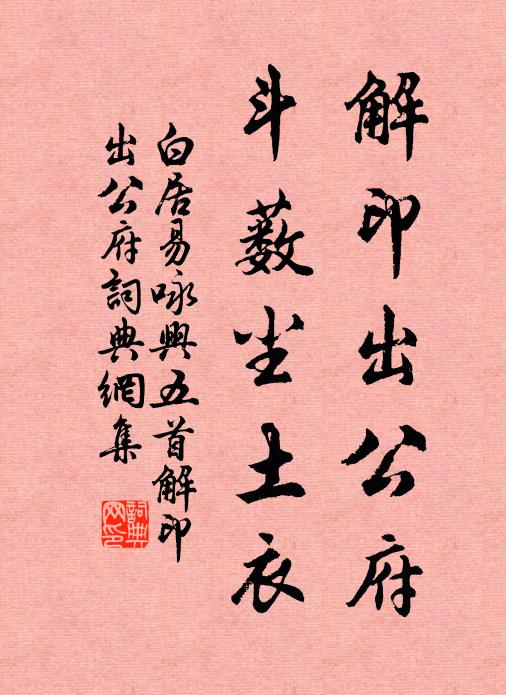 解印出公府
斗薮尘土衣
白居易咏興五首解印
出公府詞典網集
詞典網印